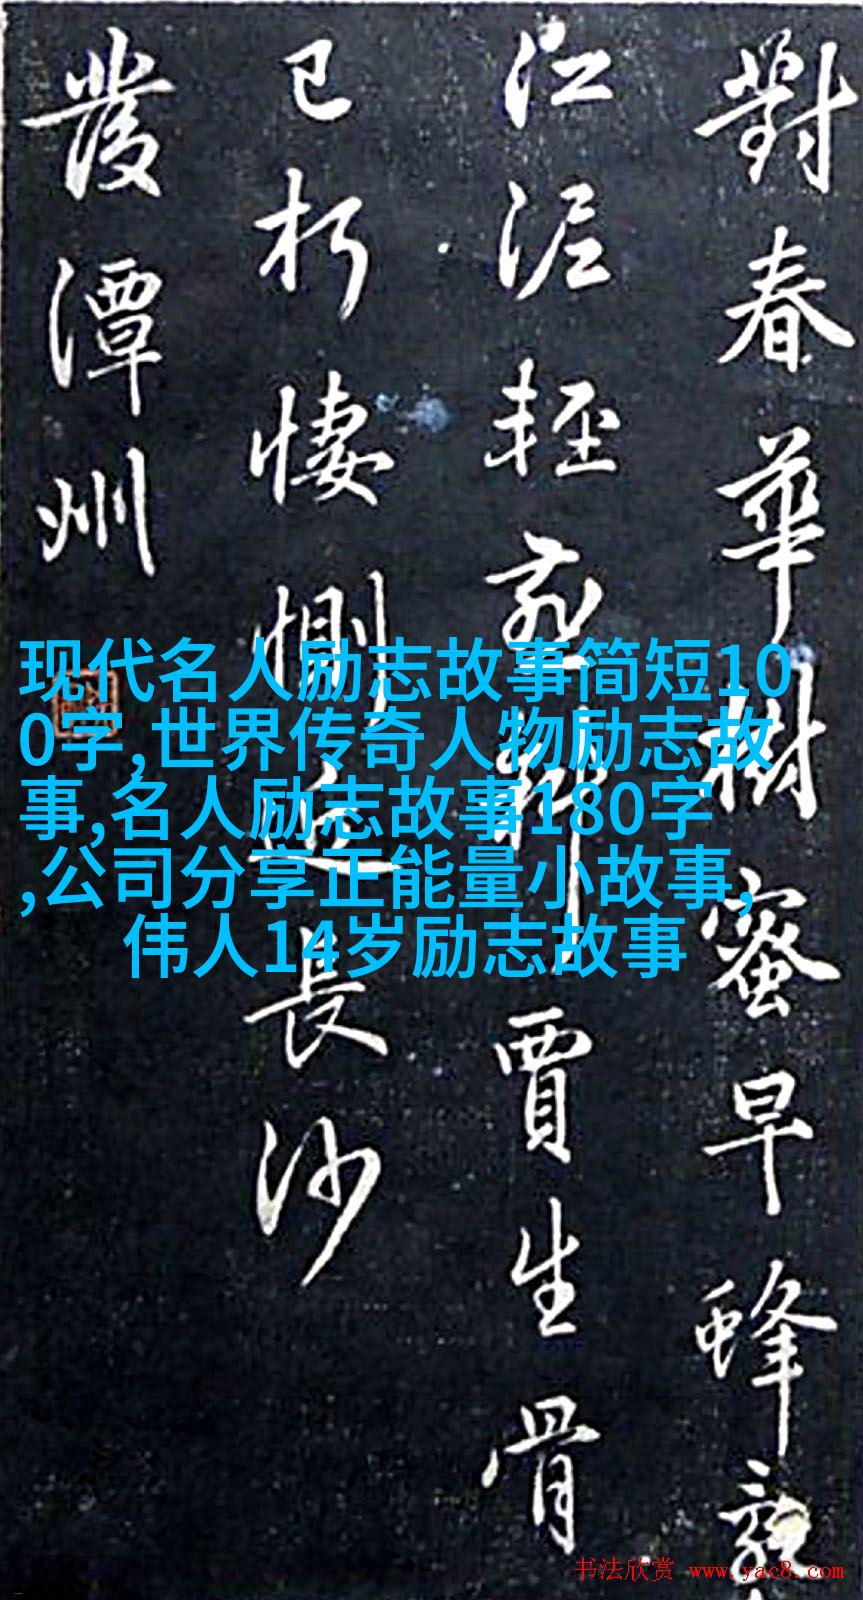 對春華樹蜜早蜂
江泥輕燕 賈生骨
已朽悽惻 長沙
發潭州
现代名人励志故事简短10
0字,世界传奇人物励志故
事,名人励志故事180字
,公司分享正能量小故事,
伟人14岁励志故事
书法欣赏 www.yac8.com